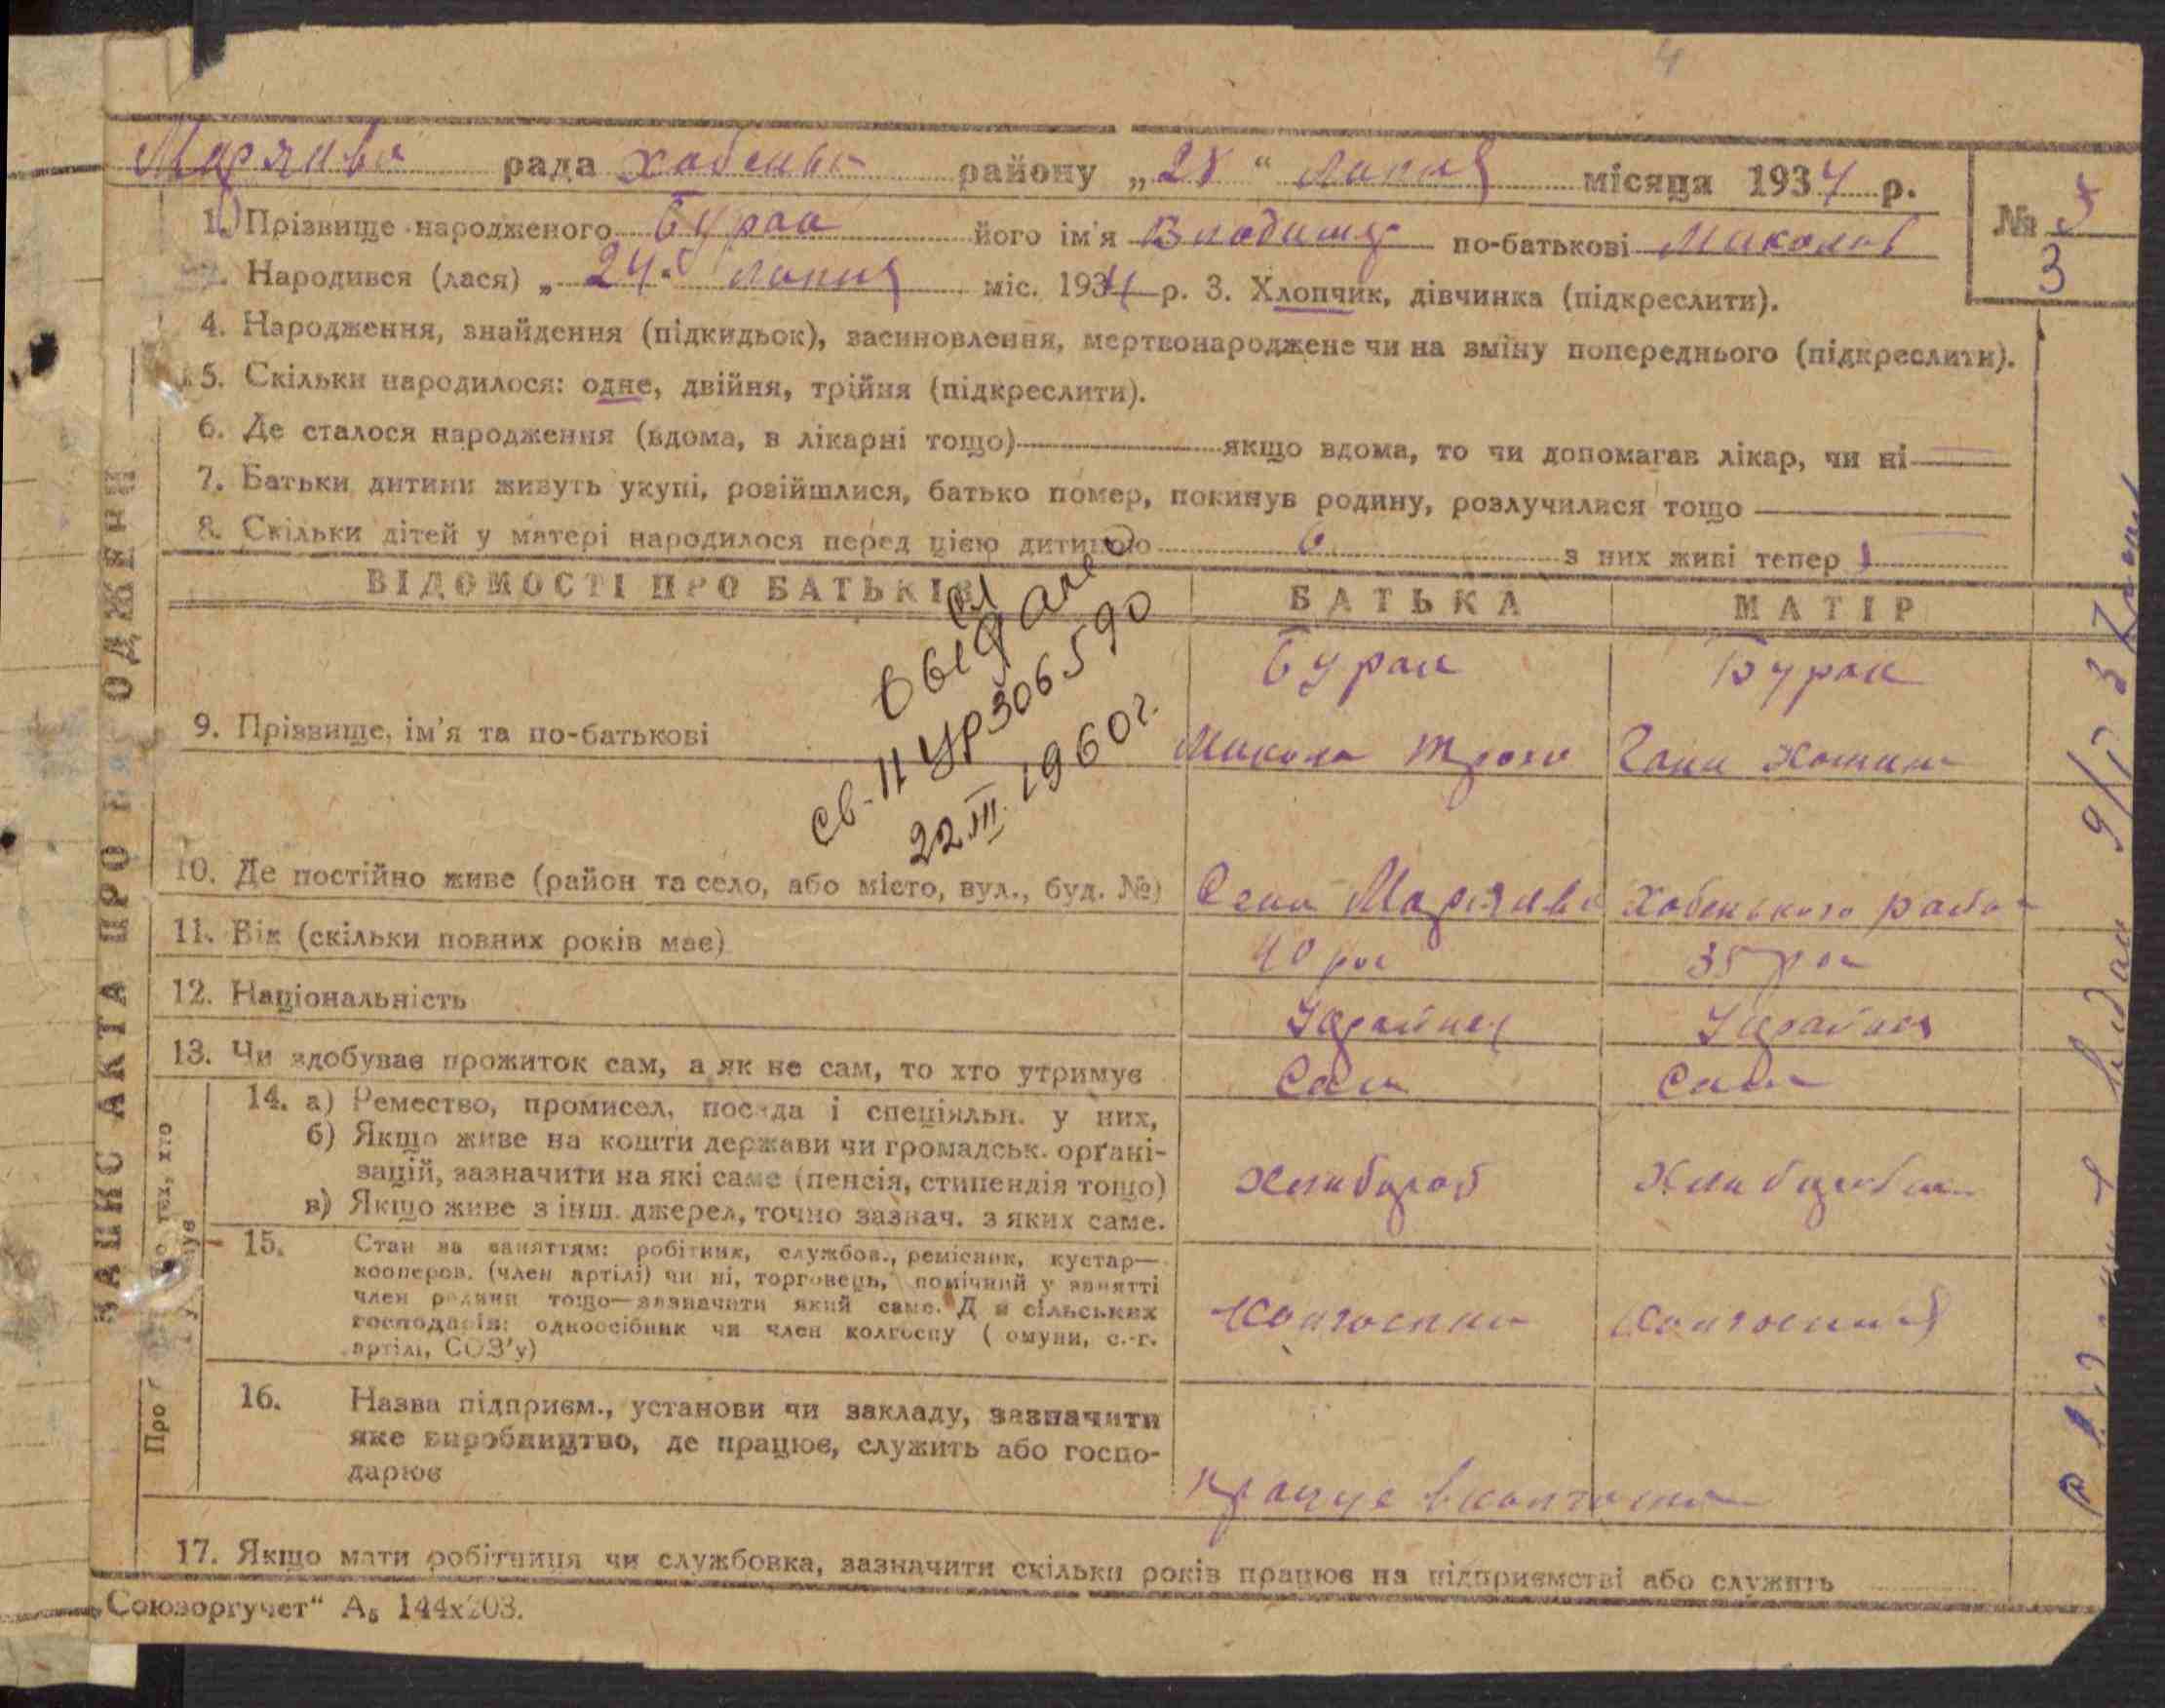 4
Марянвс рада Хабенвс району „28“ липня місяця 1934 р.
№ 5
3
1. Прізвище народженого Бурак його ім'я Володимир по-батькові Миколов
Народився (лася) „24“ липня міс. 1934 р. 3. Хлопчик, дівчинка (підкреслити).
4. Народження, знайдення (підкидьок), засиновлення, мертвонароджене чи на зміну попереднього (підкреслити).
5. Скільки народилося: одне, двійня, трійня (підкреслити).
6. Де сталося народження (вдома, в лікарні тощо) якщо вдома, то чи допомагав лікар, чи ні
7. Батьки дитини живуть укупі, розійшлися, батько помер, покинув родину, розлучилися тощо
8. Скільки дітей у матері народилося перед цією дитиною 6 з них живі тепер
ВІДОМОСТІ ПРО БАТЬКІВ БАТЬКА МАТІР
Бурак Бурак
9. Прізвище, ім'я та по-батькові Микола Трохи Ганна Хотин
св-II УР 306590
22 III. 1960 г.
10. Де постійно живе (район та село, або місто, вул., буд. №) Село Марянвс Хабенького райо
11. Вік (скільки повних років має) 40 рок 35 рок
12. Національність Українец Україн
13. Чи здобуває прожиток сам, а як не сам, то хто утримує Сам Сама
14. а) Ремество, промисел, посада і спеціяльн. у них,
б) Якщо живе на кошти держави чи громадськ. орґані-
зацій, зазначити на які саме (пенсія, стипендія тощо) Хлибороб
в) Якщо живе з інш. джерел, точно зазнач. з яких саме.
15. Стан за заняттям: робітник, службов., ремісник, кустар—
кооперов. (член артілі) чи ні, торговець, помічний у занятті
член родини тощо—зазначити який саме. Д я сільських
господарів: одноосібник чи член колгоспу ( омуни, с.-г.
артілі, СОЗ'у)
Колгоспник
16. Назва підприєм., установи чи закладу, зазначити
яке виробництво, де працює, служить або госпо-
дарює
працує в колгоспи
17. Якщо мати робітниця чи службовка, зазначити скільки років працює на підприємстві або служить
„Союзоргучет“ А₅ 144х203.
ЗАПИС АКТА ПРО НА ОДЖЕНН